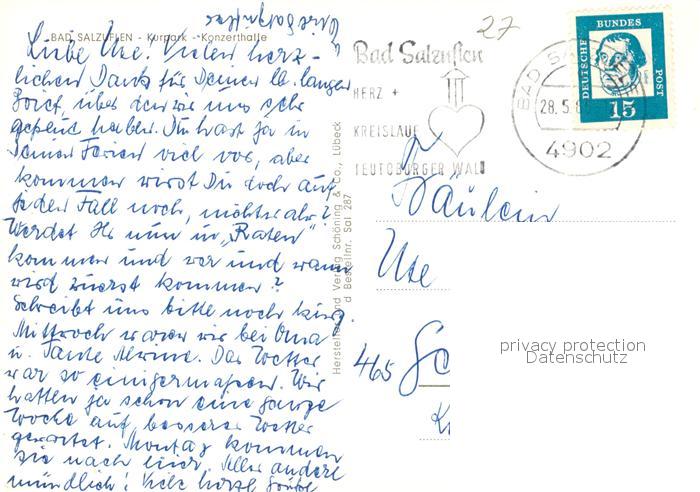 BAD SALZUFLEN - Kurpark - Konzerthalle
Liebe Ute! Vielen herz-
lichen Dank für Deinen lb. langen
Brief über den wir uns sehr
gefreut haben. Du hast ja in
Deinen Ferien viel vor, aber
kommen wirst Du doch auf
jeden Fall noch, nicht wahr?
Werdet Ihr nun in „Raten"
kommen und wer und wann
wird zuerst kommen?
Schreibt uns bitte noch kurz.
Mittwoch waren wir bei Oma
u. Tante Mimme. Das Wetter
war so einigermaßen. Wir
hatten ja schon eine ganze
Woche auf besseres Wetter
gewartet. Montag kommen
sie nach hier. Alles andere
mündlich! Viele herzl. Grüße
Hersteller und Verlag Schöning & Co., Lübeck
Bestellnr. Sal 287
27
Bad Salzuflen
HERZ +
KREISLAUF
TEUTOBURGER WALD
BAD
28.5.
4902
DEUTSCHE
BUNDES
POST
15
Fräulein
Ute
465
privacy protection
Datenschutz